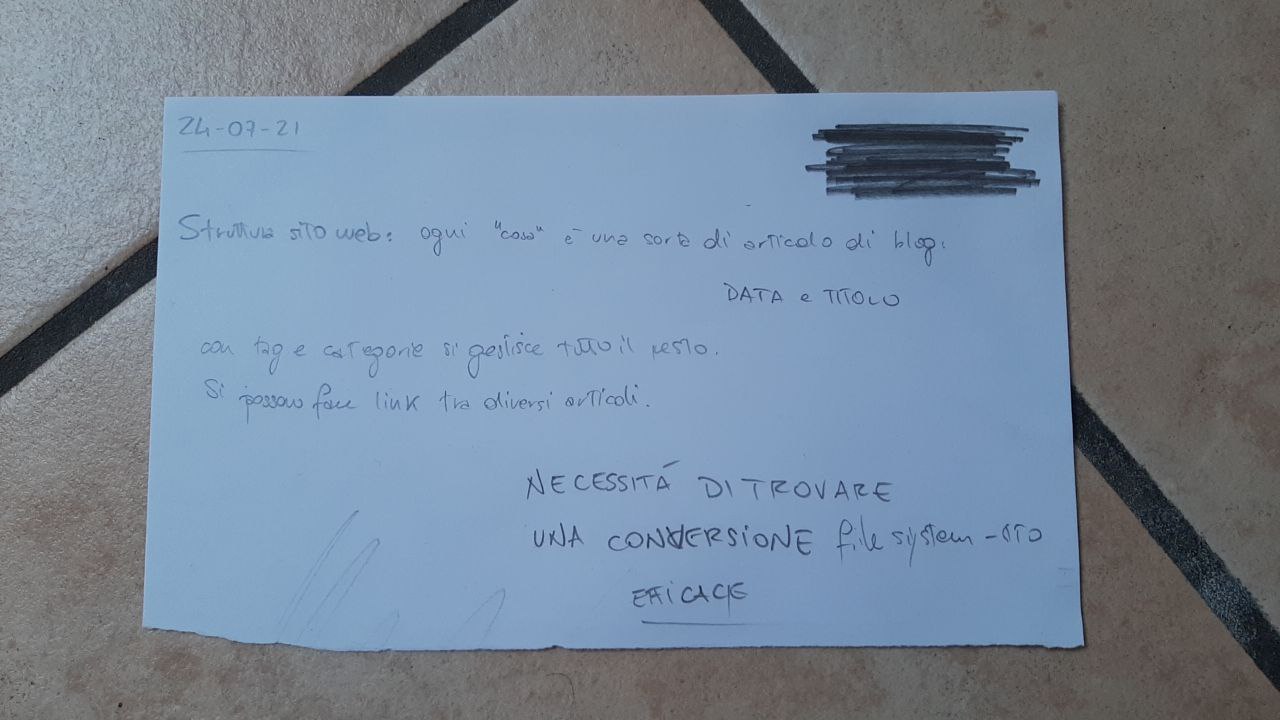 24-07-21
Struttura sito web: ogni "cosa" è una sorta di articolo di blog:
DATA e TITOLO
con tag e categorie si gestisce tutto il resto.
Si possono fare link tra diversi articoli.
NECESSITÁ DI TROVARE
UNA CONVERSIONE file system - sito
EFFICACE